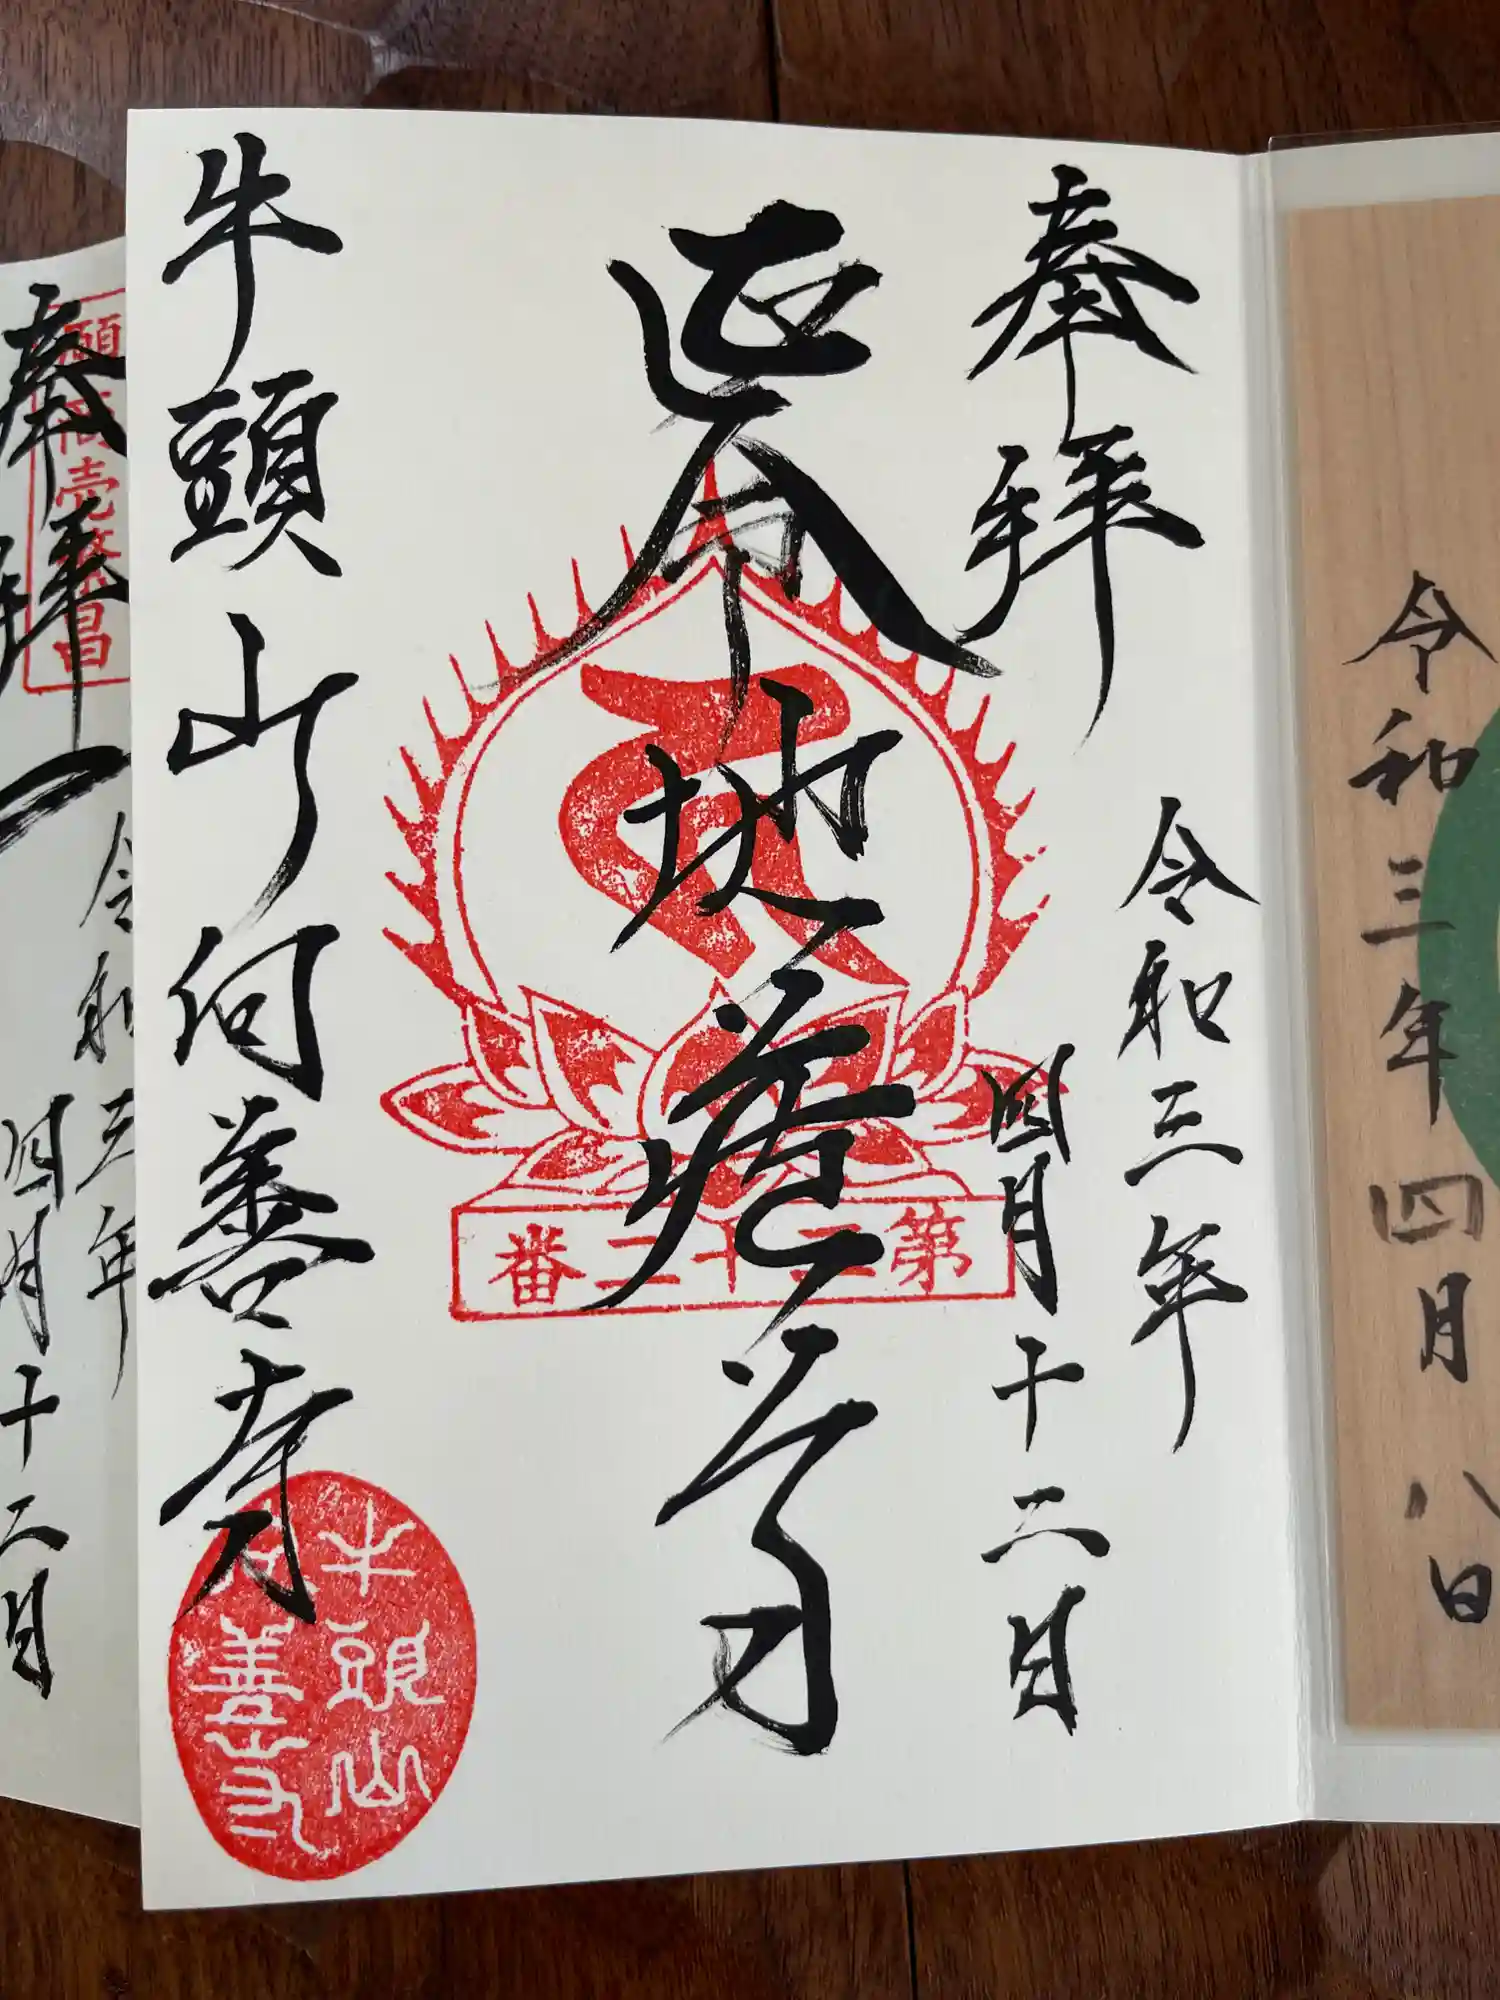 令和三年四月八日
奉拝
令和三年
四月十二日
延命地蔵尊
第三十二番
牛頭山 善寺
牛頭山
善寺
奉拝
令和三年
四月十二日